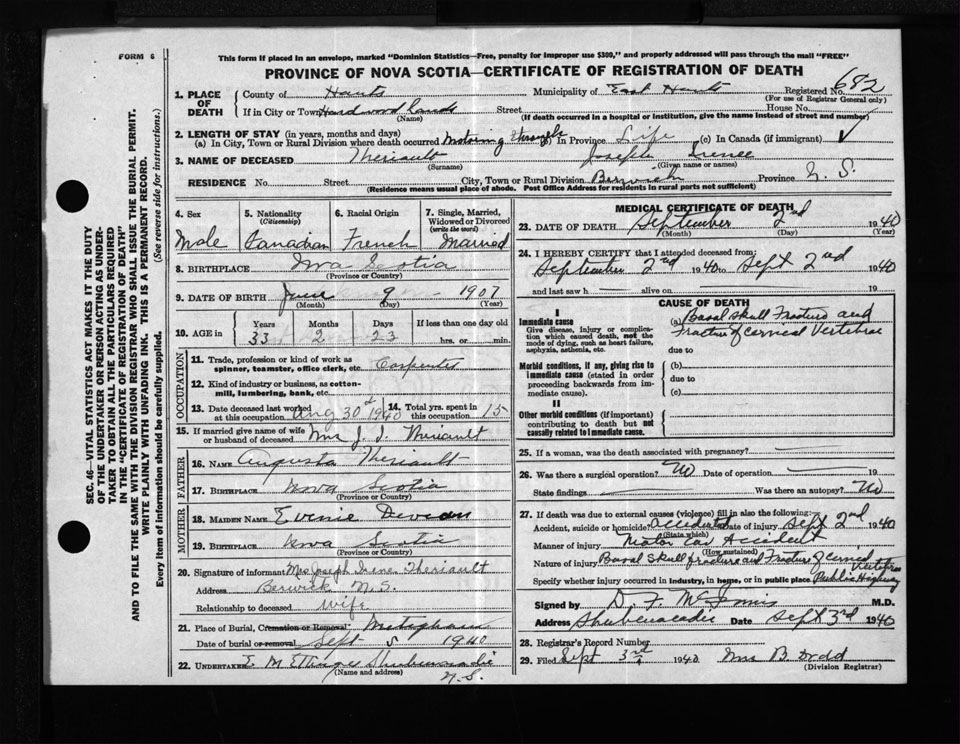 FORM 6
This form if placed in an envelope, marked "Dominion Statistics—Free, penalty for improper use $300," and properly addressed will pass through the mail "FREE"
PROVINCE OF NOVA SCOTIA—CERTIFICATE OF REGISTRATION OF DEATH
1. PLACE OF DEATH
County of Hants Municipality of East Hants Registered No. 682
(For use of Registrar General only)
If in City or Town Hardwoodlands Street House No.
(Name) (If death occurred in a hospital or institution, give the name instead of street and number)
2. LENGTH OF STAY (in years, months and days)
(a) In City, Town or Rural Division where death occurred Motoring through (b) In Province Life (c) In Canada (if immigrant)
3. NAME OF DECEASED Theriault Joseph Irenee
(Surname) (Given name or names)
RESIDENCE No. Street City, Town or Rural Division Berwick Province N. S.
(Residence means usual place of abode. Post Office Address for residents in rural parts not sufficient)
4. Sex Male
5. Nationality (Citizenship) Canadian
6. Racial Origin French
7. Single, Married, Widowed or Divorced (write the word) Married
8. BIRTHPLACE Nova Scotia
(Province or Country)
9. DATE OF BIRTH June 9 1907
(Month) (Day) (Year)
10. AGE in Years Months Days If less than one day old
33 2 23 hrs. or min.
OCCUPATION
11. Trade, profession or kind of work as spinner, teamster, office clerk, etc. Carpenter
12. Kind of industry or business, as cotton-mill, lumbering, bank, etc.
13. Date deceased last worked at this occupation Aug 30 1940
14. Total yrs. spent in this occupation 15
15. If married give name of wife or husband of deceased Mrs J. I. Theriault
FATHER
16. NAME Augusta Theriault
17. BIRTHPLACE Nova Scotia
(Province or Country)
MOTHER
18. MAIDEN NAME Evenie
19. BIRTHPLACE Nova Scotia
(Province or Country)
20. Signature of informant Mrs Joseph Irene Theriault
Address Berwick N.S.
Relationship to deceased wife
21. Place of Burial, Cremation or Removal Meteghan
Date of burial or removal Sept 5 1940
22. UNDERTAKER E. M. Ettinger Shubenacadie
(Name and address) N.S.
MEDICAL CERTIFICATE OF DEATH
23. DATE OF DEATH September 2nd 1940
(Month) (Day) (Year)
24. I HEREBY CERTIFY that I attended deceased from:
September 2nd 1940 to Sept 2nd 1940
and last saw h alive on 19
CAUSE OF DEATH
I
Immediate cause
Give disease, injury or complication which caused death, not the mode of dying, such as heart failure, asphyxia, asthenia, etc.
(a) Basal skull Fracture and Fracture of cervical Vertebrae
due to
Morbid conditions, if any, giving rise to immediate cause (stated in order proceeding backwards from immediate cause).
(b)
due to
(c)
II
Other morbid conditions (if important) contributing to death but not causally related to immediate cause.
25. If a woman, was the death associated with pregnancy?
26. Was there a surgical operation? No Date of operation 19
State findings Was there an autopsy? No
27. If death was due to external causes (violence) fill in also the following:
Accident, suicide or homicide Accidental Date of injury Sept 2nd 1940
(State which)
Manner of injury Motor Car Accident
(How sustained)
Nature of injury Basal skull fracture and Fracture of cervical Vertebrae
Specify whether injury occurred in industry, in home, or in public place Public Highway
Signed by D. F. McInnis M.D.
Address Shubenacadie Date Sept 3rd 1940
28. Registrar's Record Number
29. Filed Sept 3rd 1940 Mrs B. Dodd
(Division Registrar)
SEC. 46—VITAL STATISTICS ACT MAKES IT THE DUTY
OF THE UNDERTAKER OR PERSON ACTING AS UNDER-
TAKER TO OBTAIN ALL THE PARTICULARS REQUIRED
IN THE "CERTIFICATE OF REGISTRATION OF DEATH"
AND TO FILE THE SAME WITH THE DIVISION REGISTRAR WHO SHALL ISSUE THE BURIAL PERMIT.
WRITE PLAINLY WITH UNFADING INK. THIS IS A PERMANENT RECORD.
Every item of information should be carefully supplied. (See reverse side for instructions.)